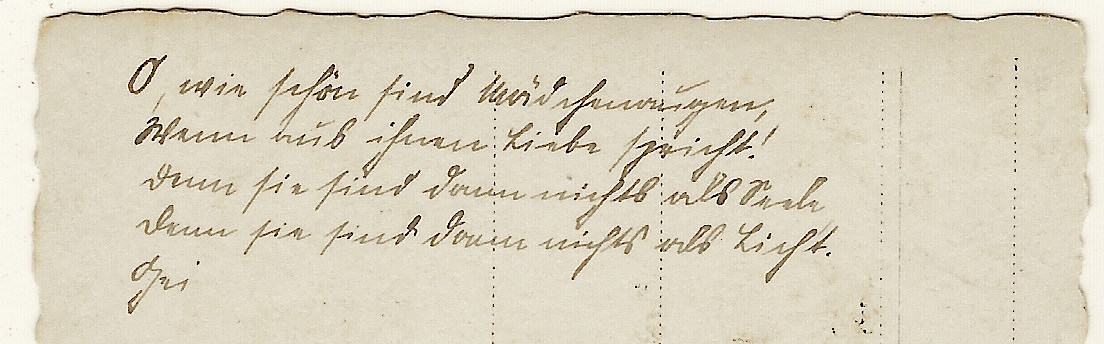 O, wie schön sind Mädchenaugen,
Wenn aus ihnen Liebe spricht!
Denn sie sind dann nichts als Seele
Denn sie sind dann nichts als Licht.